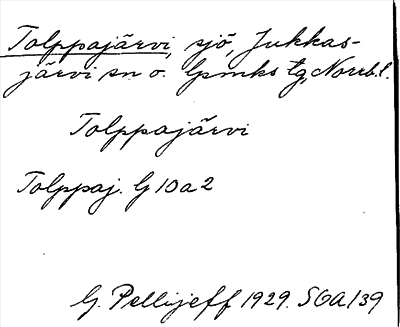 Tolppajärvi, sjö, Jukkas-
järvi sn o. lpmks tg, Norrb. l.
Tolppajärvi
Tolppaj. G 10 a 2
G. Pellijeff 1929. SOA/39